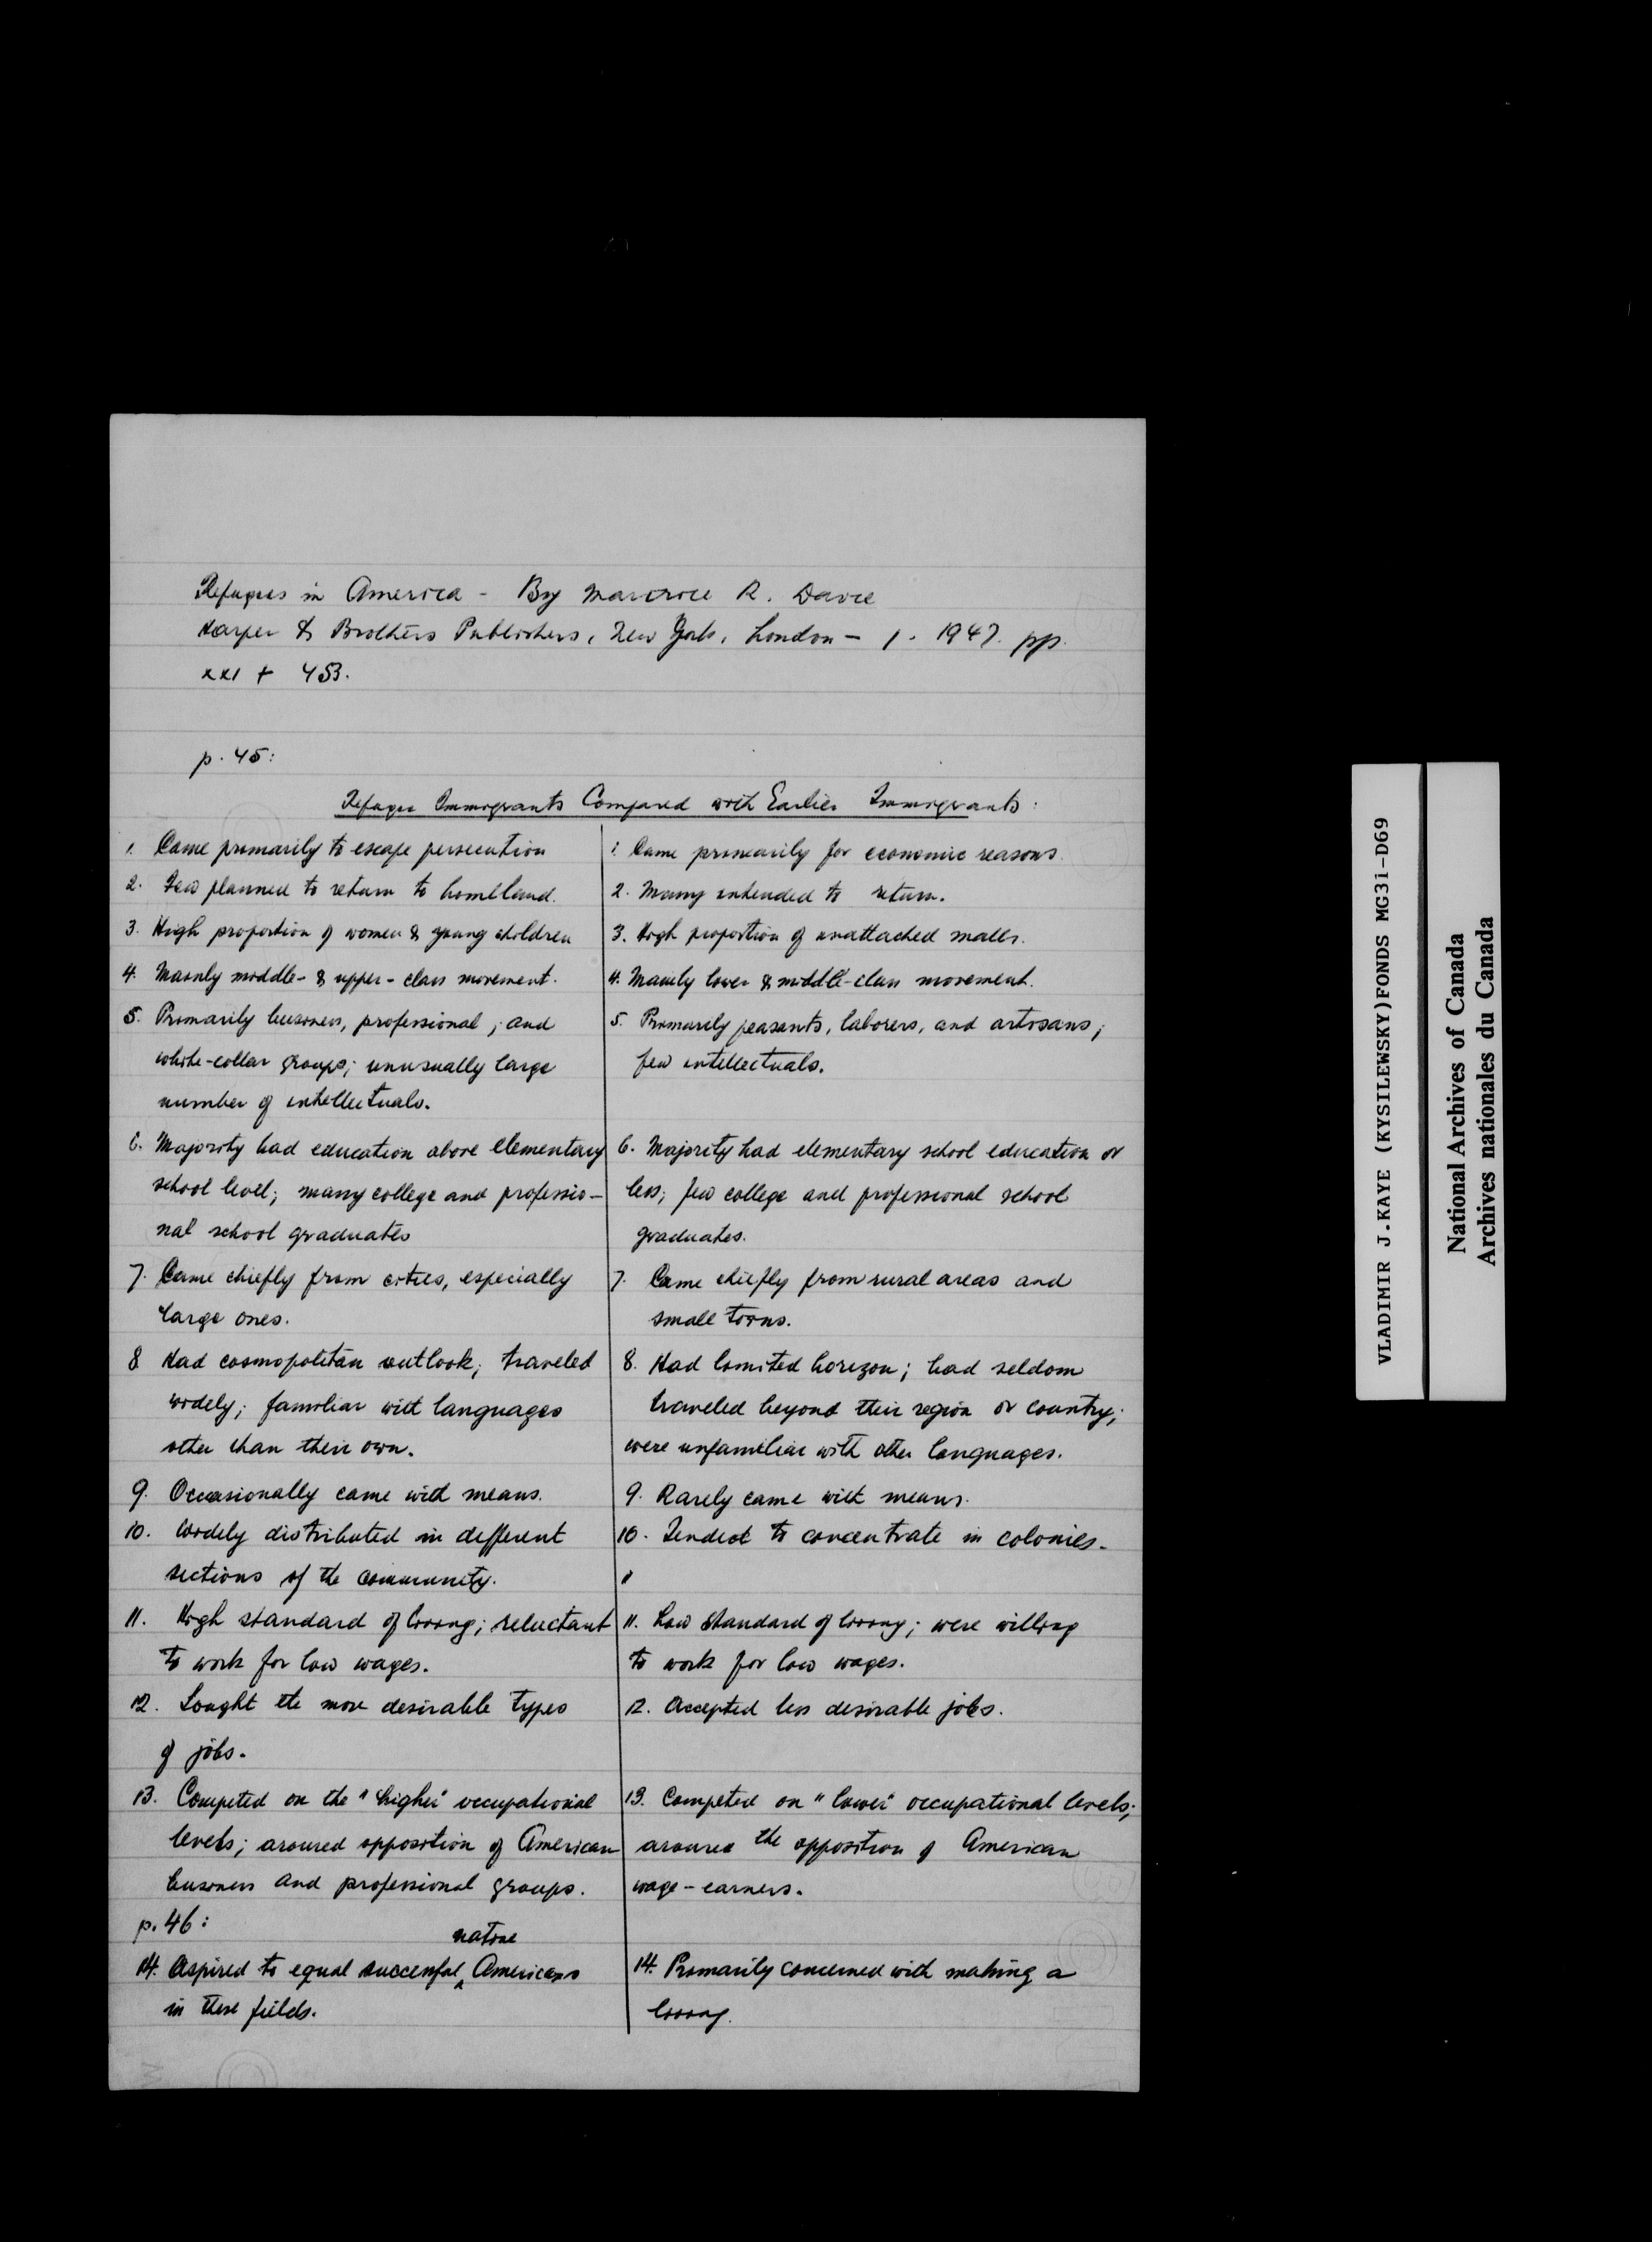 Refugees in America - By Maurice R. Davie
Harper & Brothers Publishers, New York, London - 1. 1947. pp.
xxi + 453.
p. 45:
Refugee Immigrants Compared with Earlier Immigrants:
1. Came primarily to escape persecution
2. Few planned to return to homeland.
3. High proportion of women & young children
4. Mainly middle- & upper-class movement.
5. Primarily business, professional, and
white-collar groups; unusually large
number of intellectuals.
6. Majority had education above elementary
school level; many college and professio-
nal school graduates
7. Came chiefly from cities, especially
large ones.
8 Had cosmopolitan outlook; traveled
widely; familiar with languages
other than their own.
9. Occasionally came with means.
10. Widely distributed in different
sections of the community.
11. High standard of living; reluctant
to work for low wages.
12. Sought the more desirable types
of jobs.
13. Competed on the "higher" occupational
levels; aroused opposition of American
business and professional groups.
p. 46:
14. Aspired to equal successful native Americans
in these fields.
1. Came primarily for economic reasons.
2. Many intended to return.
3. High proportion of unattached males.
4. Mainly lower & middle-class movement.
5. Primarily peasants, laborers, and artisans;
few intellectuals.
6. Majority had elementary school education or
less; few college and professional school
graduates.
7. Came chiefly from rural areas and
small towns.
8. Had limited horizon; had seldom
traveled beyond their region or country;
were unfamiliar with other languages.
9. Rarely came with means.
10. Tended to concentrate in colonies.
11. Low standard of living; were willing
to work for low wages.
12. Accepted less desirable jobs.
13. Competed on "lower" occupational levels;
aroused the opposition of American
wage-earners.
14. Primarily concerned with making a
living.
VLADIMIR J.KAYE (KYSILEWSKY)FONDS MG31-D69
National Archives of Canada
Archives nationales du Canada